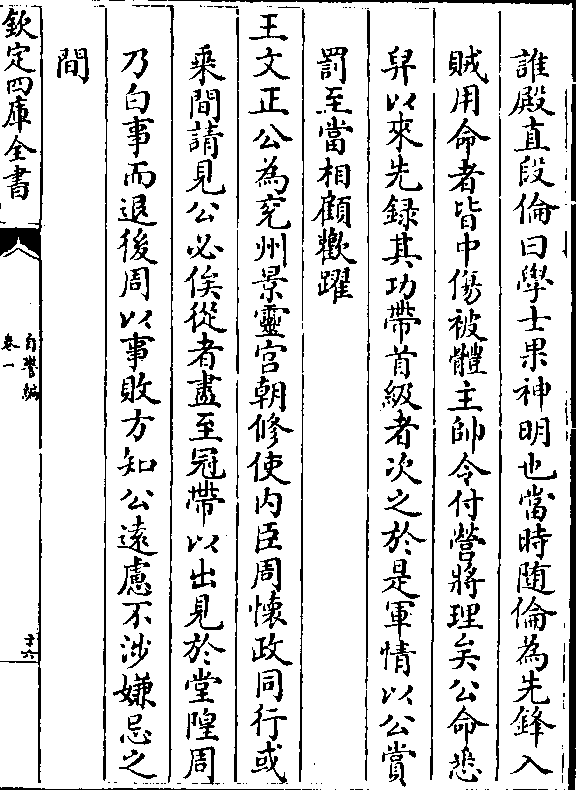 誰殿直段倫曰學士果神明也當時随倫為先鋒入
賊用命者皆中傷被體主帥令付營將理矣公命悉
舁以來先録其功帶首級者次之於是軍情以公賞
罰至當相顧歡躍
王文正公為兖州景靈宫朝修使内臣周懷政同行或
乘間請見公必俟從者盡至冠帶以出見於堂隍周
乃白事而退後周以事敗方知公遠慮不涉嫌忌之
間
欽定四庫全書
自警編
卷一
十六